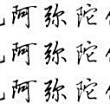 阿弥陀
阿弥陀
阿弥陀